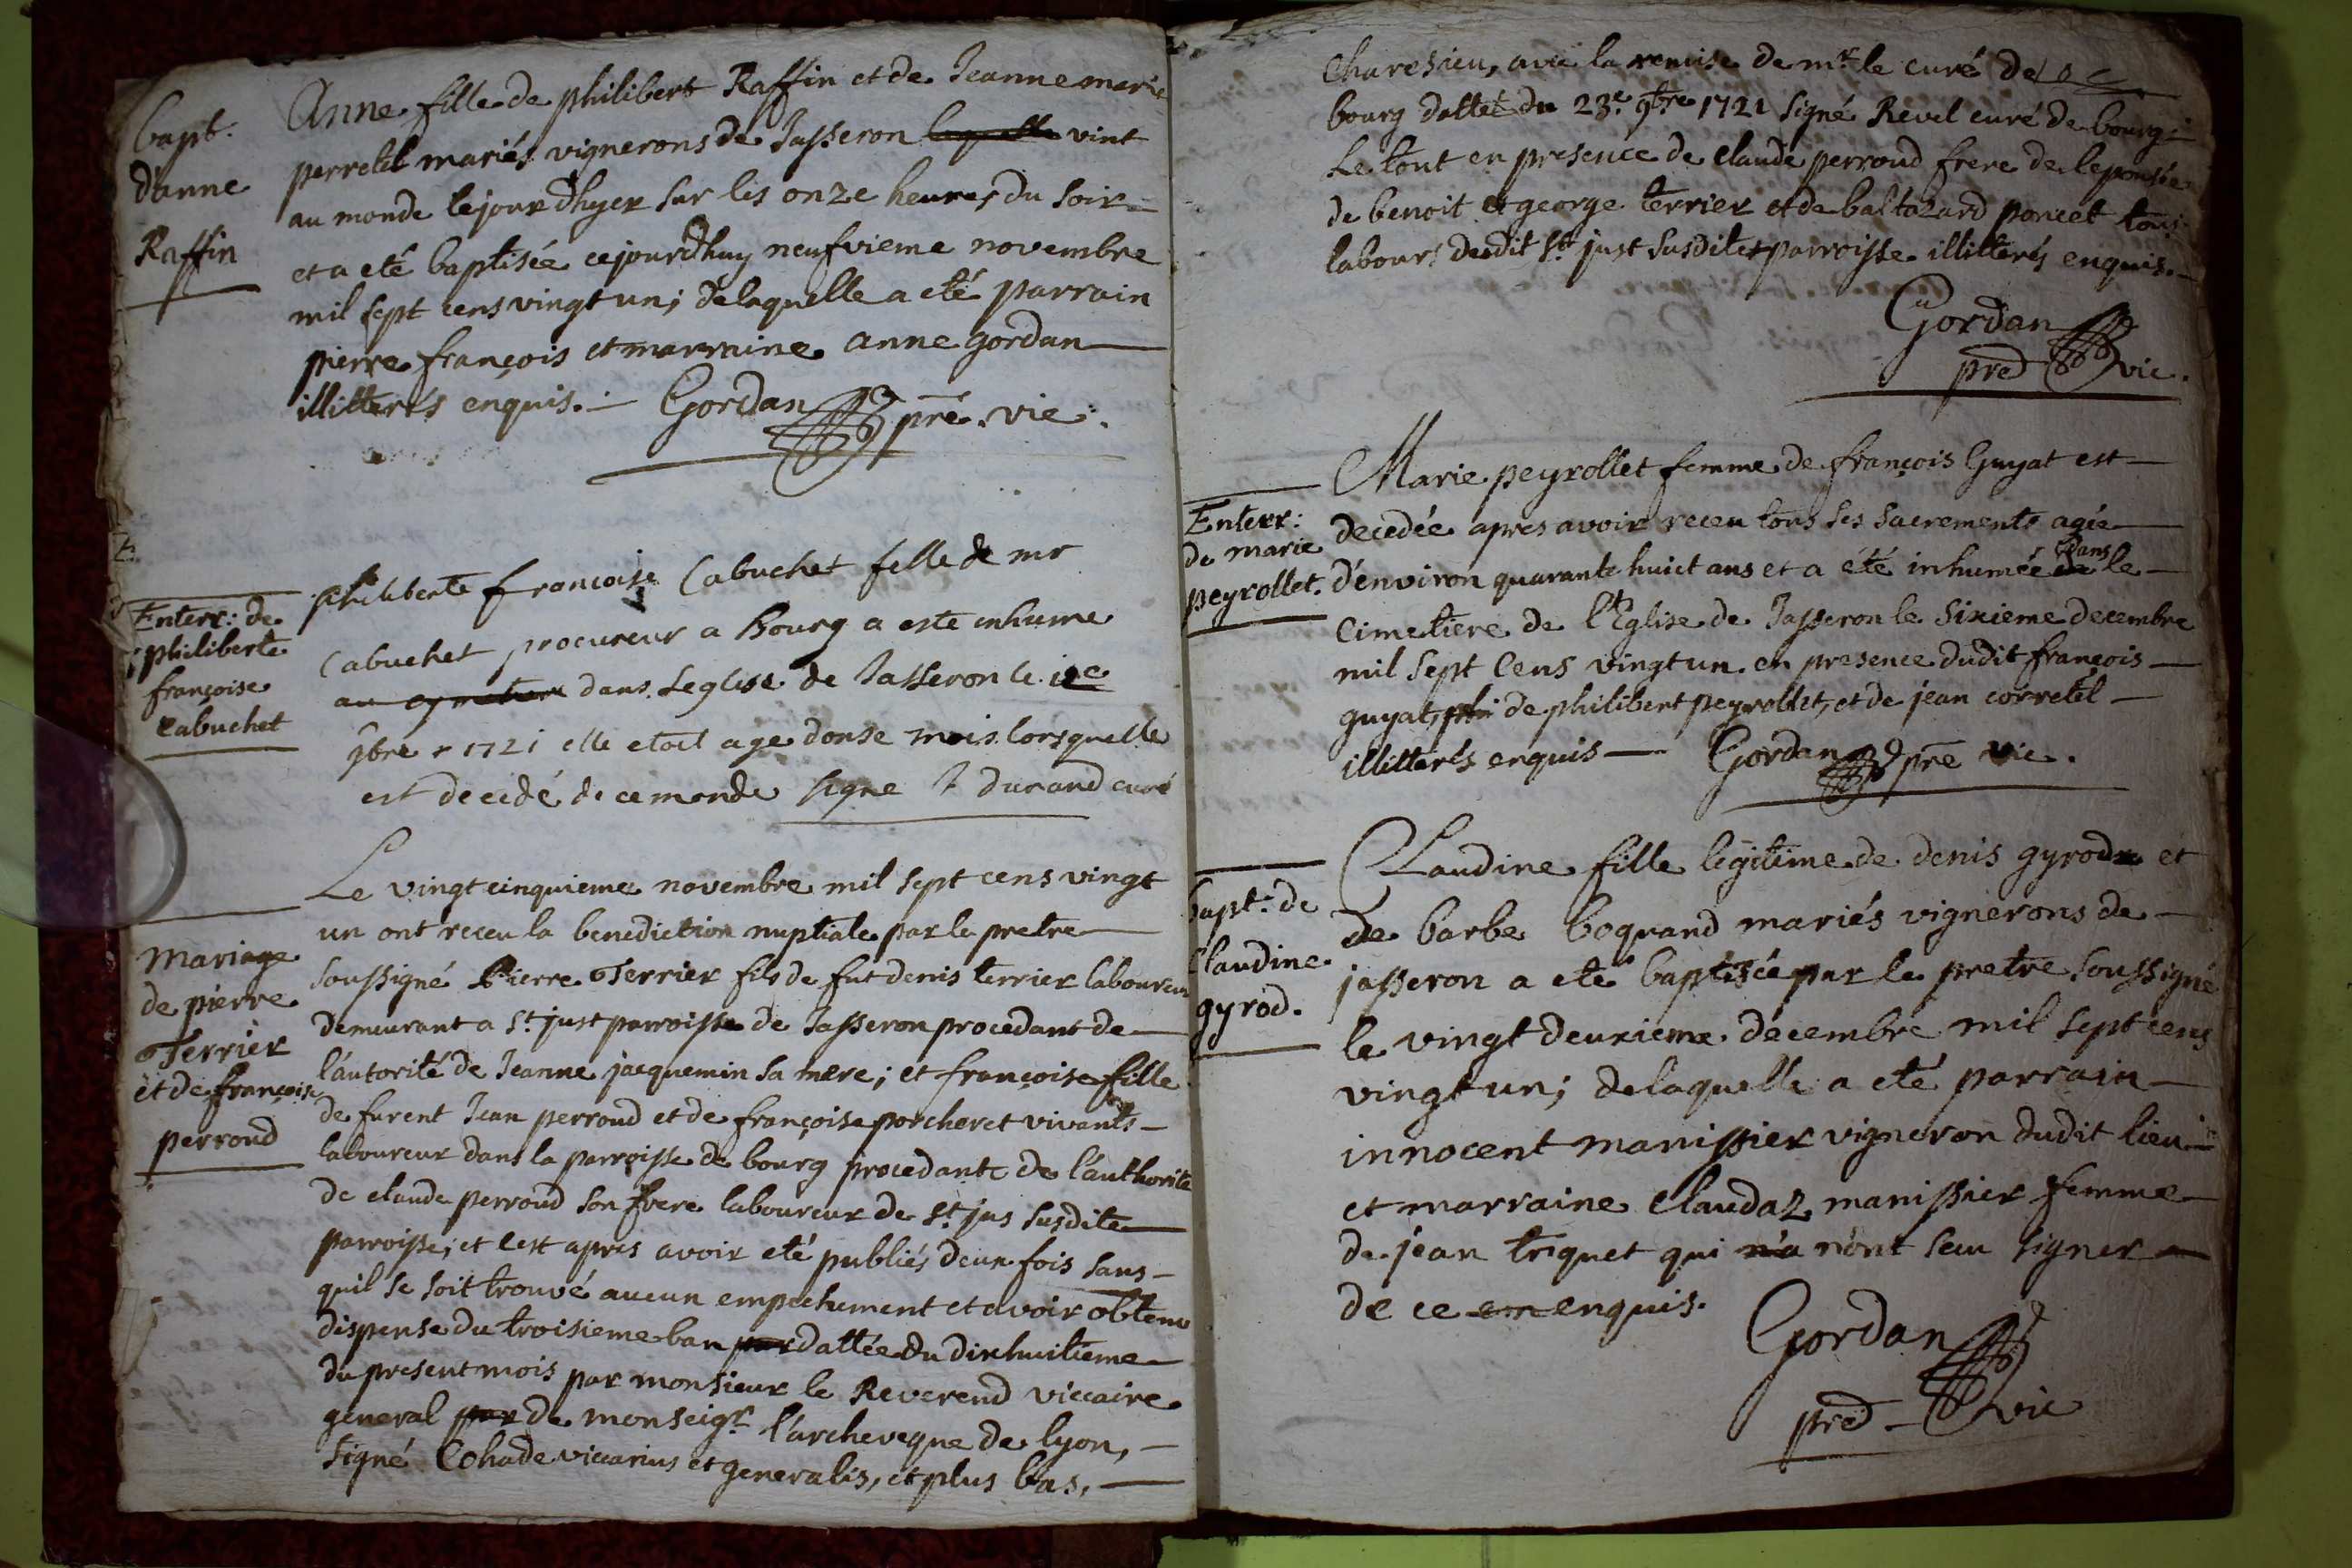 bapt.
d'anne
Raffin
Anne fille de philibert Raffin et de Jeanne marie
perretel mariés vignerons de Jasseron laquelle vint
au monde lejourdhyer sur les onze heures du soir
et a eté baptisée cejourdhuy neufvieme novembre
mil sept cens vingt un; delaquelle a eté parrain
pierre françois et marraine anne gordan
illitterés enquis. Gordan pre. vic.
Enterr: de
philiberte
françoise
Cabuchet
philiberte francoise Cabuchet fille de mr
Cabuchet procureur a Bourg a este inhume
au cymetiere dans leglise de Jasseron le
9bre 1721 elle etoit age donse mois lorsquelle
est decedé de ce monde signe durand curé
Mariage
de pierre
Terrier
et de françoise
perroud
Le vingt cinquieme novembre mil sept cens vingt
un ont receu la benediction nuptiale par le pretre
soussigné Pierre Terrier fils de fut denis terrier laboureur
demeurant a St. just parroisse de Jasseron procedant de
l'autorité de Jeanne jacquemin sa mere; et françoise fille
de furent Jean perroud et de françoise porcheret vivants
laboureur dans la parroisse de bourg procedante de l'authorité
de claude perroud son frere laboureur de St. jus susdite
parroisse; et cest apres avoir eté publiés deux fois sans
quil se soit trouvé aucun empechement et avoir obtenu
dispense du troisieme ban par dattée du dixhuitieme
du present mois par monsieur le Reverend viccaire
general par de monseigr. l'archeveque de lyon,
signé Cohade viccarius et generalis, et plus bas,
Charesieu, avec la remise de mr. le curé de
bourg dattée du 23e. 9bre 1721 signé Revel curé de bourg
Le tout en presence de claude perroud frere de lepousée
de benoit et george terrier et de baltazard poncet tous
labours dudit St. just susdite parroisse illitterés enquis.
Gordan
pre vic.
Enterr:
de marie
peyrollet.
Marie peyrollet femme de françois Guyat est
decedée apres avoir receu tous ses sacrements agée
d'environ quarante huict ans et a été inhumée de dans le
Cimetiere de l'Eglise de Jasseron le sixieme decembre
mil sept Cens vingt un en presence dudit françois
guyat, phi de philibert peyrollet, et de jean corretél
illitterés enquis Gordan pre vic.
bapt. de
Claudine
gyrod.
Claudine fille legitime de denis gyrod et
de barbe boquand mariés vignerons de
jasseron a eté baptisée par le pretre soussigné
le vingt deuxieme decembre mil sept cens
vingt un; delaquelle a eté parrain
innocent manissier vigneron dudit lieu
et marraine Claudaz manissier femme
de jean triquet qui n'a n'ont sceu signer
de ce en enquis.
Gordan
pre vic